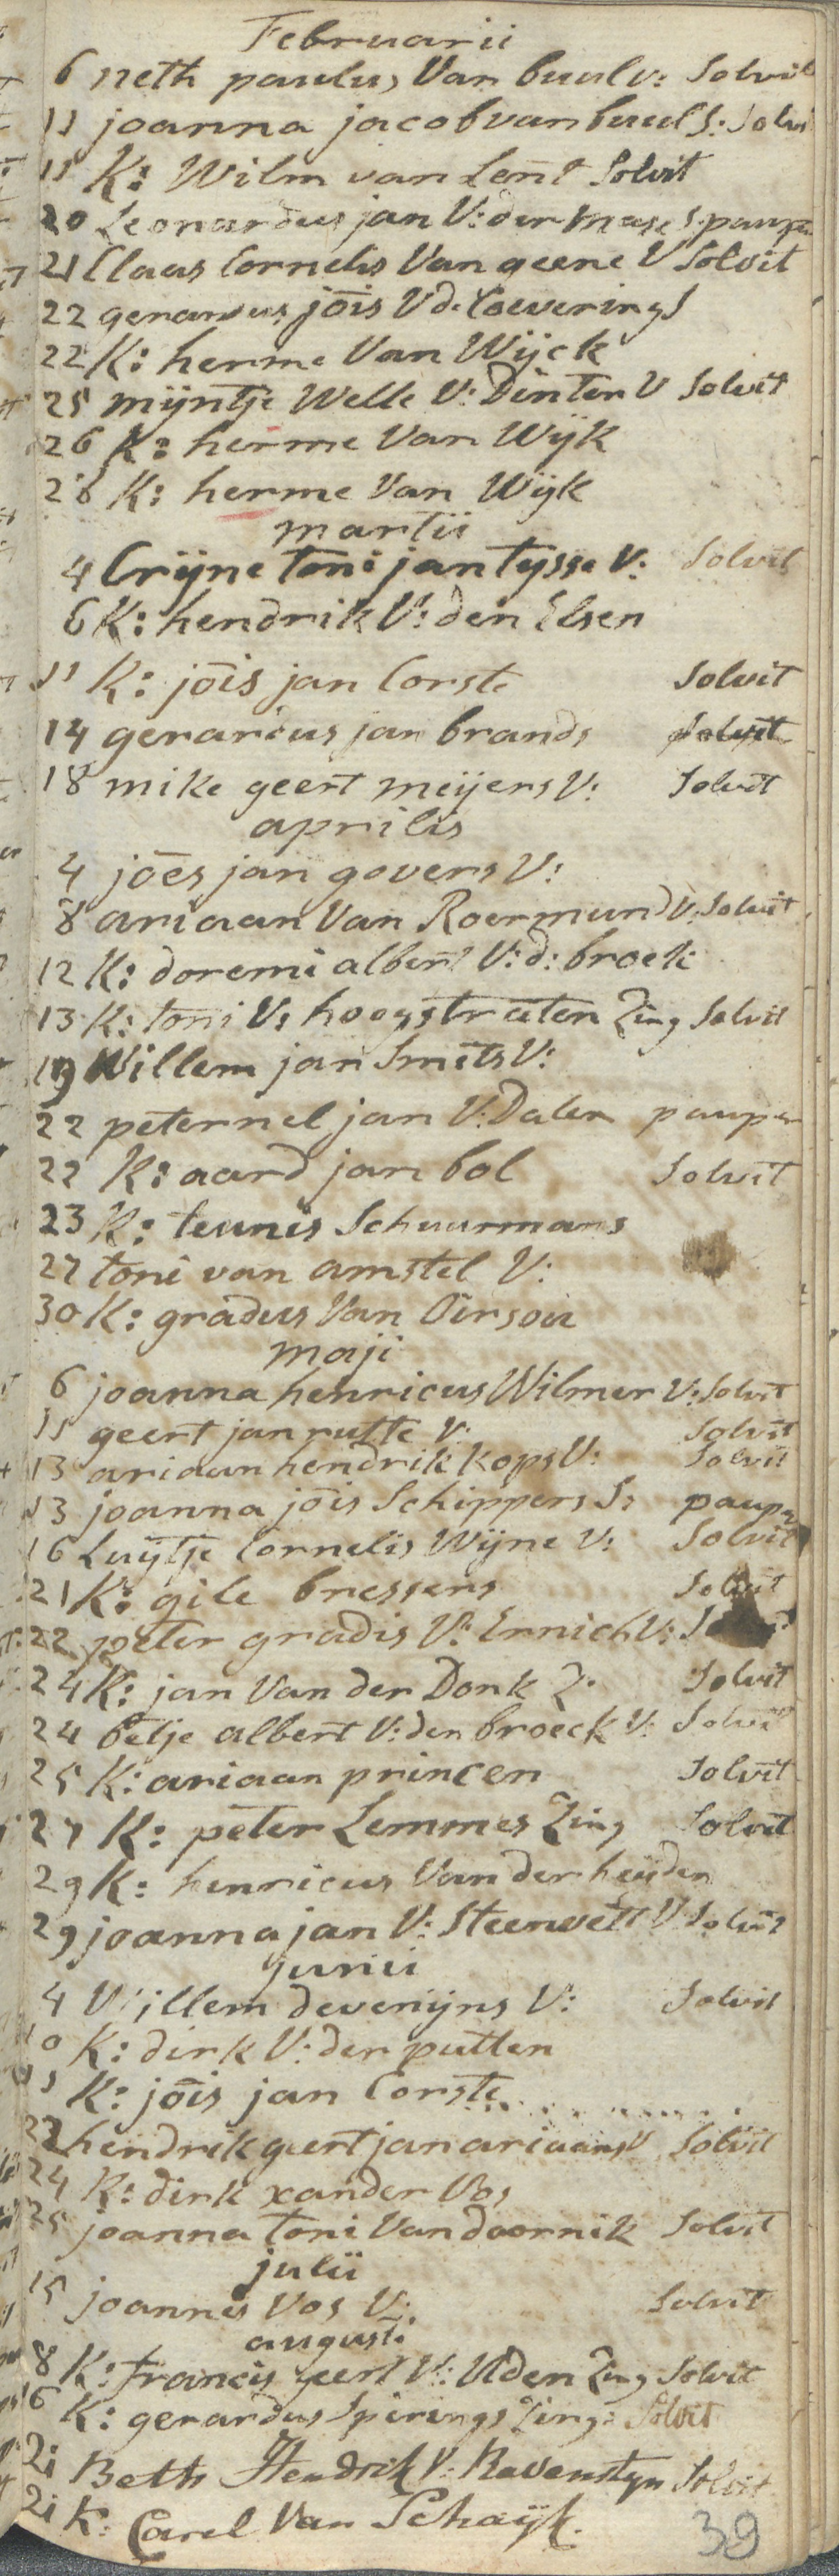 Februarii
6 neth paulus Van buul v: Solvit
11 joanna jacob van buul S: Solvi
11 K: Wilm van Lent Solvit
20 Leonardus jan V: der mase S pauper
21 Claas Cornelis Van geene V Solvit
22 gerardus jōis V d. Coevering S
22 K: herme Van Wijck
25 mijntje Welle V: Dinter V Solvit
26 K: herme Van Wijk
28 K: herme Van Wijk
martii
4 Crijne toni jan tysse V: Solvit
6 K: hendrik V: den Elsen
11 K: jōis jan Corste Solvit
14 gerardus jan brands Solvit
18 mike geert meijers V: Solvit
aprilis
4 jōes jan govers V:
8 ariaan Van Roermund V: Solvit
12 K: doremi albert V: d: broek
13 K: toni V: hoogstraten Zing Solvit
19 Willem jan Smits V:
22 peternel jan V: Dalen pauper
22 K: aard jan bol Solvit
23 K: teunis Schuurmans
27 toni van amstel V:
30 K: gradus Van Oirsou
maji
6 joanna henricus Wilmer V: Solvit
11 geert jan rutte V: Solvit
13 ariaan hendrik kops V: Solvit
13 joanna jōis Schippers S: paupe
16 Luijtje Cornelis Wijne V: Solvit
21 K: gile bressers Solvit
22 peter gradis V: Ernich V:
24 K: jan Van der Donk Z: Solvit
24 betje albert V: den broeck V: Solvit
25 K: ariaan princen Solvit
27 K: peter Lemmes Zing Solvit
29 K: henricus Van der heijden
29 joanna jan V: Steenvelt V Solvit
junii
4 Willem devenijns V: Solvit
10 K: dirk V: der putten
11 K: jōis jan Corste . . . . . . . . . .
22 hendrik geert jan ariaans V Solvit
24 K: dirk xander Vos
25 joanna toni Van doornik Solvit
julii
15 joannes Vos V: Solvit
augusti
8 K: francis geert V: Uden Zing Solvit
16 K: gerardus Spierings Zing: Solvit
21 Beth Hendrik V: Ravenstyn Solvit
21 K: Carel Van Schaijk.
39